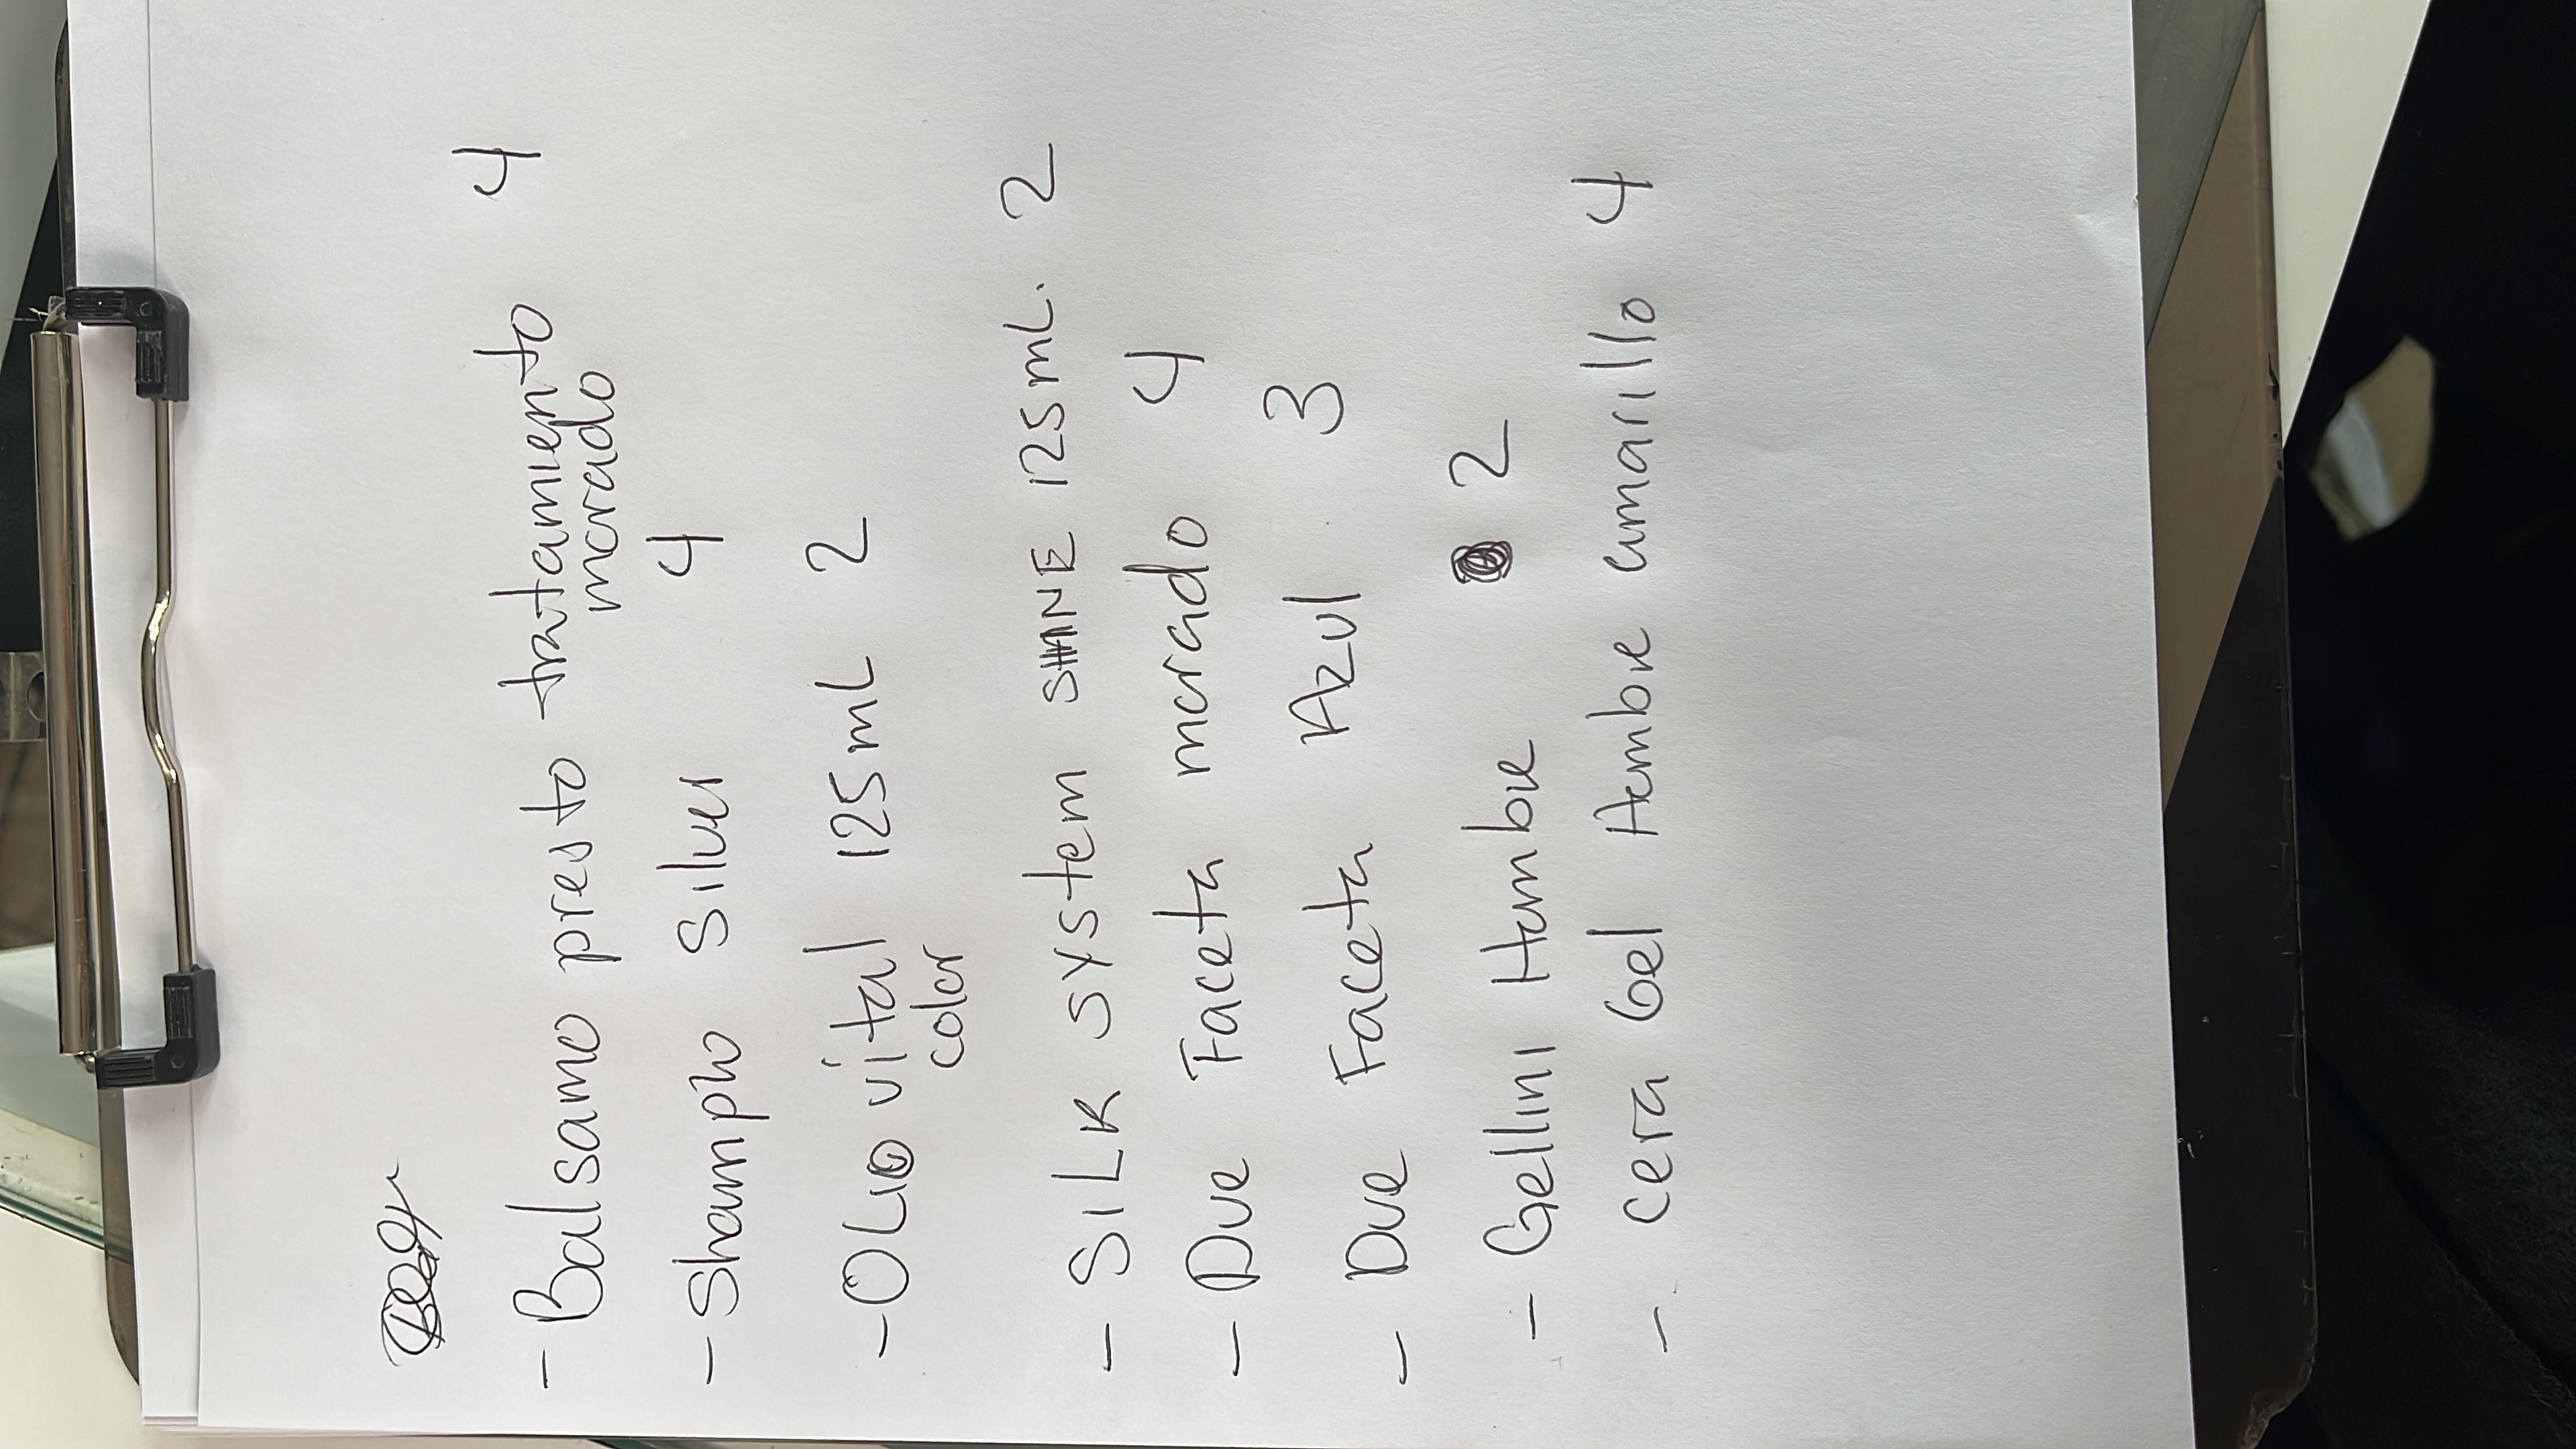 - Balsamo presto tratamiento 4
morado
- Shampho Silver 4
- OLIO vital 125mL 2
color
- SiLK system SHINE 125mL. 2
- Due Faceta morado 4
- Due Faceta Azul 3
- Gellini Hombre 2
- cera Gel Hombre amarillo 4